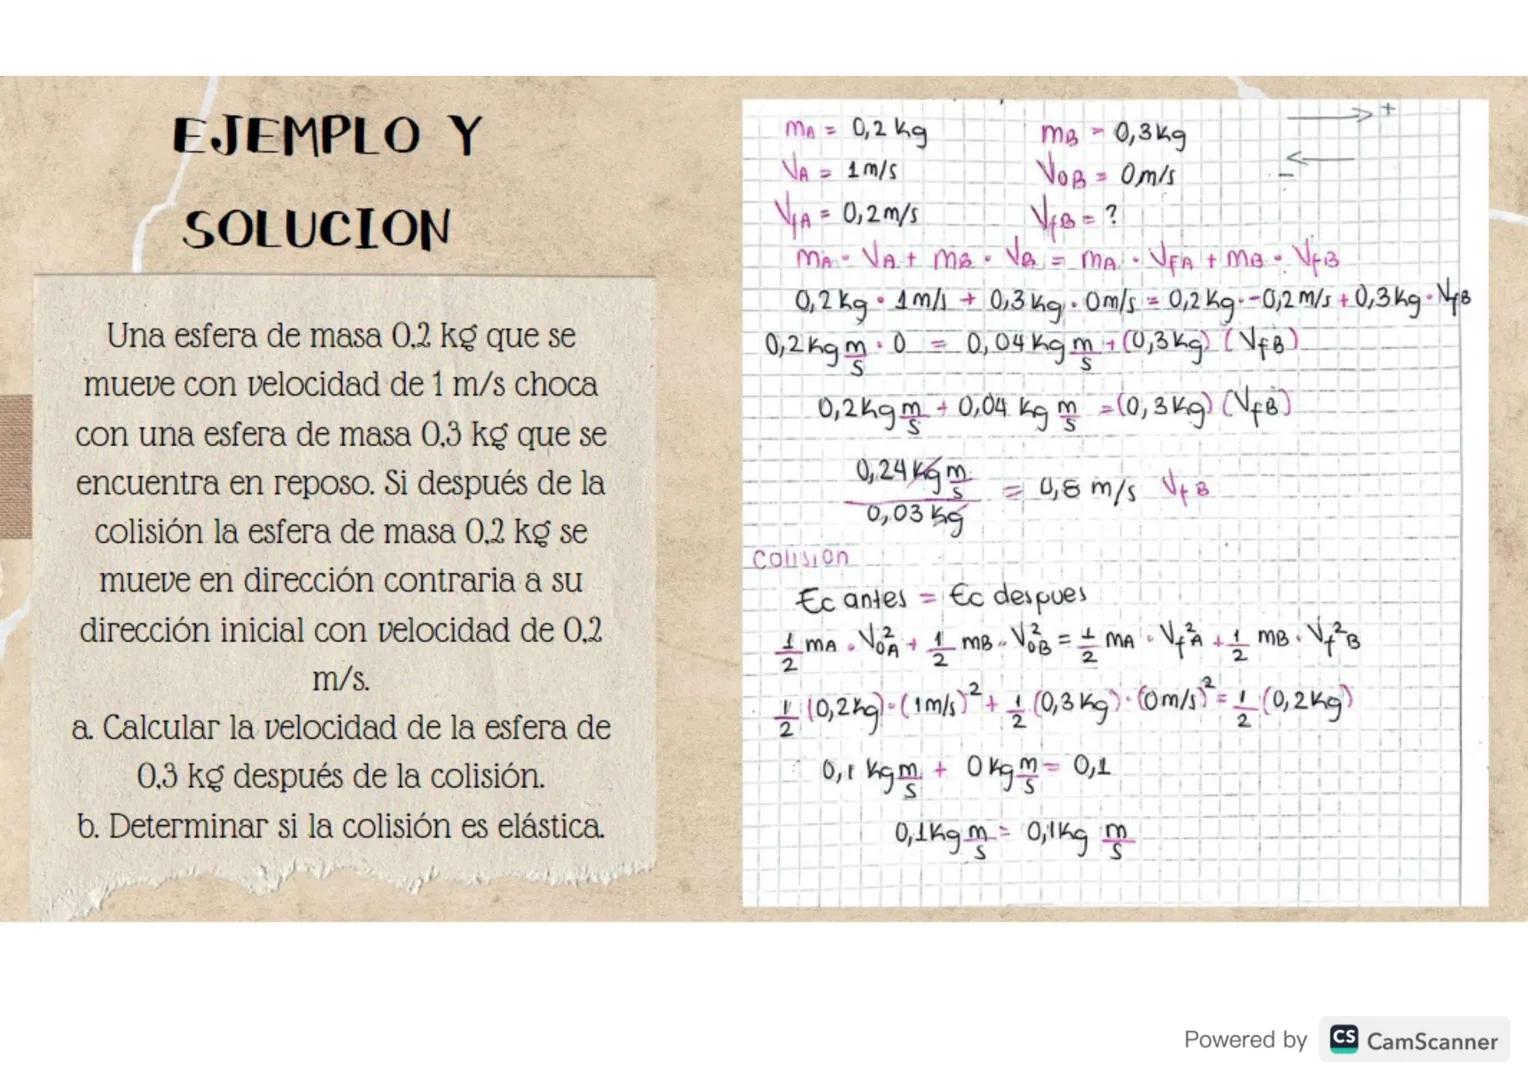 EJEMPLO Y
SOLUCION
Una esfera de masa 0,2 kg que se
mueve con velocidad de 1 m/s choca
con una esfera de masa 0,3 kg que se
encuentra en reposo. Si después de la
colisión la esfera de masa 0,2 kg se
mueve en dirección contraria a su
dirección inicial con velocidad de 0,2
m/s.
a. Calcular la velocidad de la esfera de
0,3 kg después de la colisión.
b. Determinar si la colisión es elástica.
mA = 0,2 kg mB = 0,3 kg → +
VA = 1 m/s VoB = 0 m/s ← −
VfA = 0,2 m/s VfB = ?
mA · VA + mB · VB = mA · VFA + mB · VfB
0,2 kg · 1 m/s + 0,3 kg · 0 m/s = 0,2 kg · -0,2 m/s + 0,3 kg · VfB
0,2 kg m/s · 0 = 0,04 kg m/s + (0,3 kg) (VfB)
0,2 kg m/s + 0,04 kg m/s = (0,3 kg) (VfB)
0,24 kg m/s / 0,03 kg = 0,8 m/s VfB
Colisión
Ec antes = Ec despues
1/2 mA · VoA² + 1/2 mB · VoB² = 1/2 mA · Vf²A + 1/2 mB · Vf²B
1/2 (0,2 kg) · (1 m/s)² + 1/2 (0,3 kg) · (0 m/s)² = 1/2 (0,2 kg)
0,1 kg m/s + 0 kg m/s = 0,1
0,1 kg m/s = 0,1 kg m/s
Powered by CS CamScanner